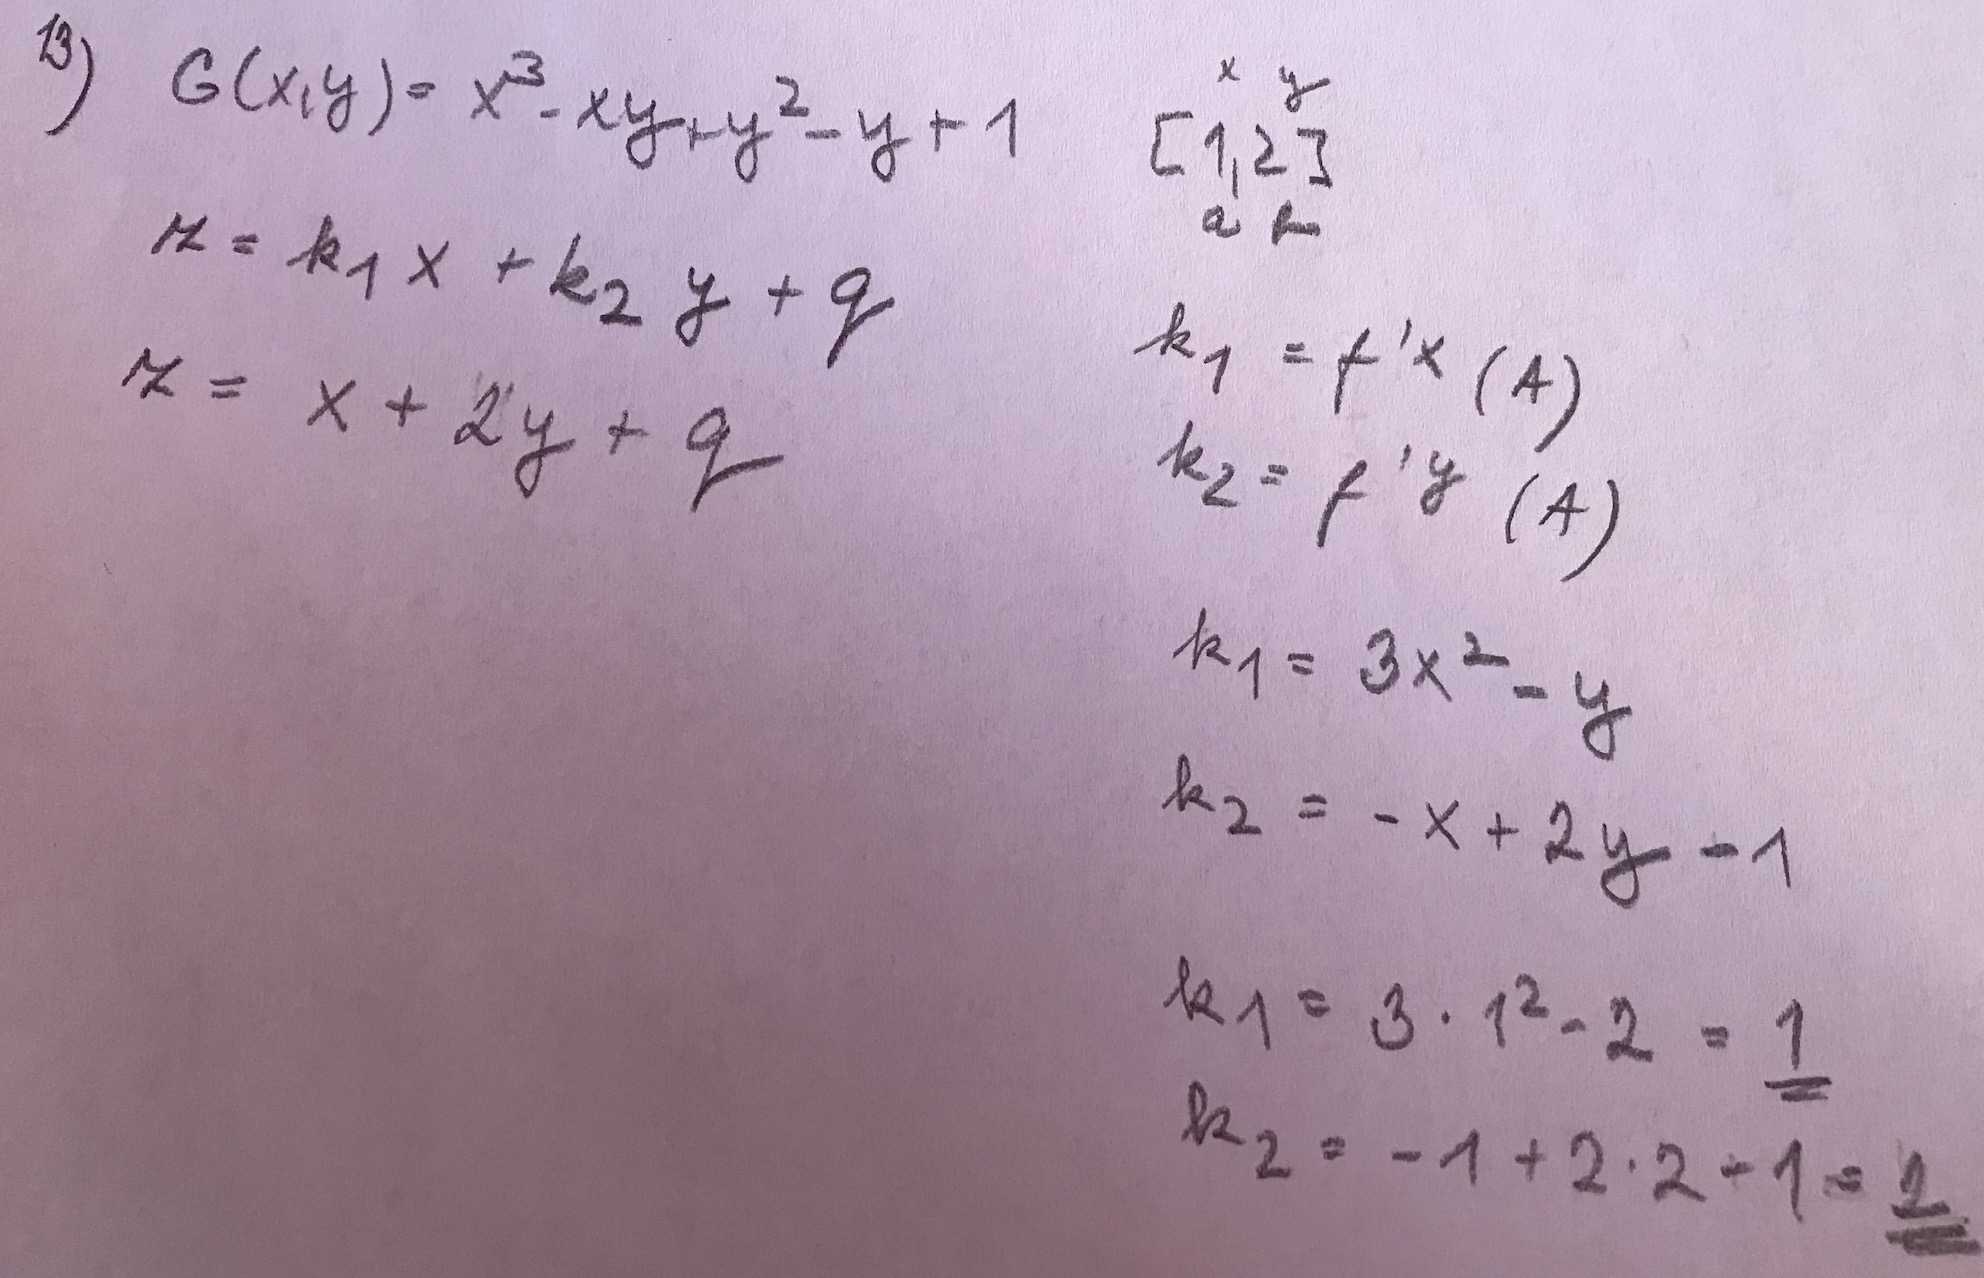 13) G(x,y) = x³ - xy + y² - y + 1
x y
[1,2]
a b
z = k₁ x + k₂ y + q
z = x + 2y + q
k₁ = f'x (A)
k₂ = f'y (A)
k₁ = 3x² - y
k₂ = -x + 2y - 1
k₁ = 3 · 1² - 2 = 1
k₂ = -1 + 2 · 2 - 1 = 2